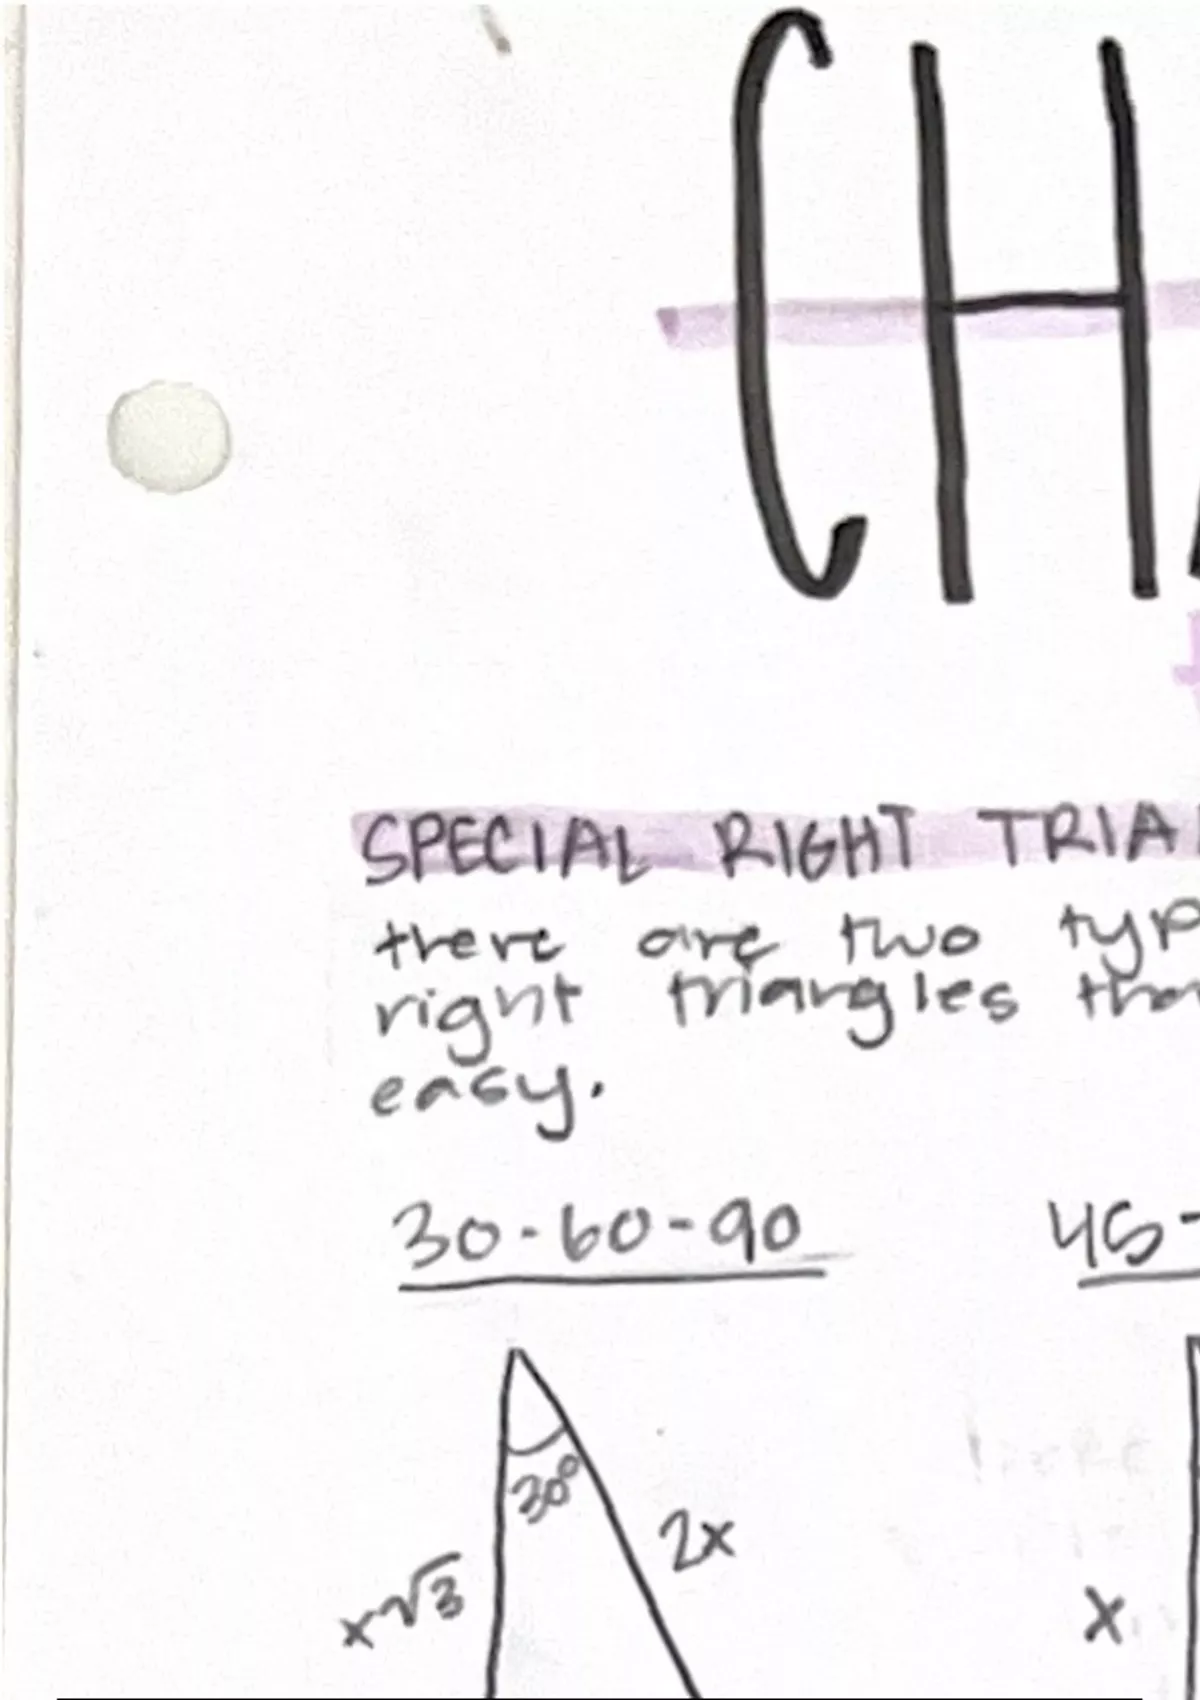 CH
SPECIAL RIGHT TRIA
there are two typ
right triangles tha
easy.
30-60-90 45-
30°
2x
x√3 x